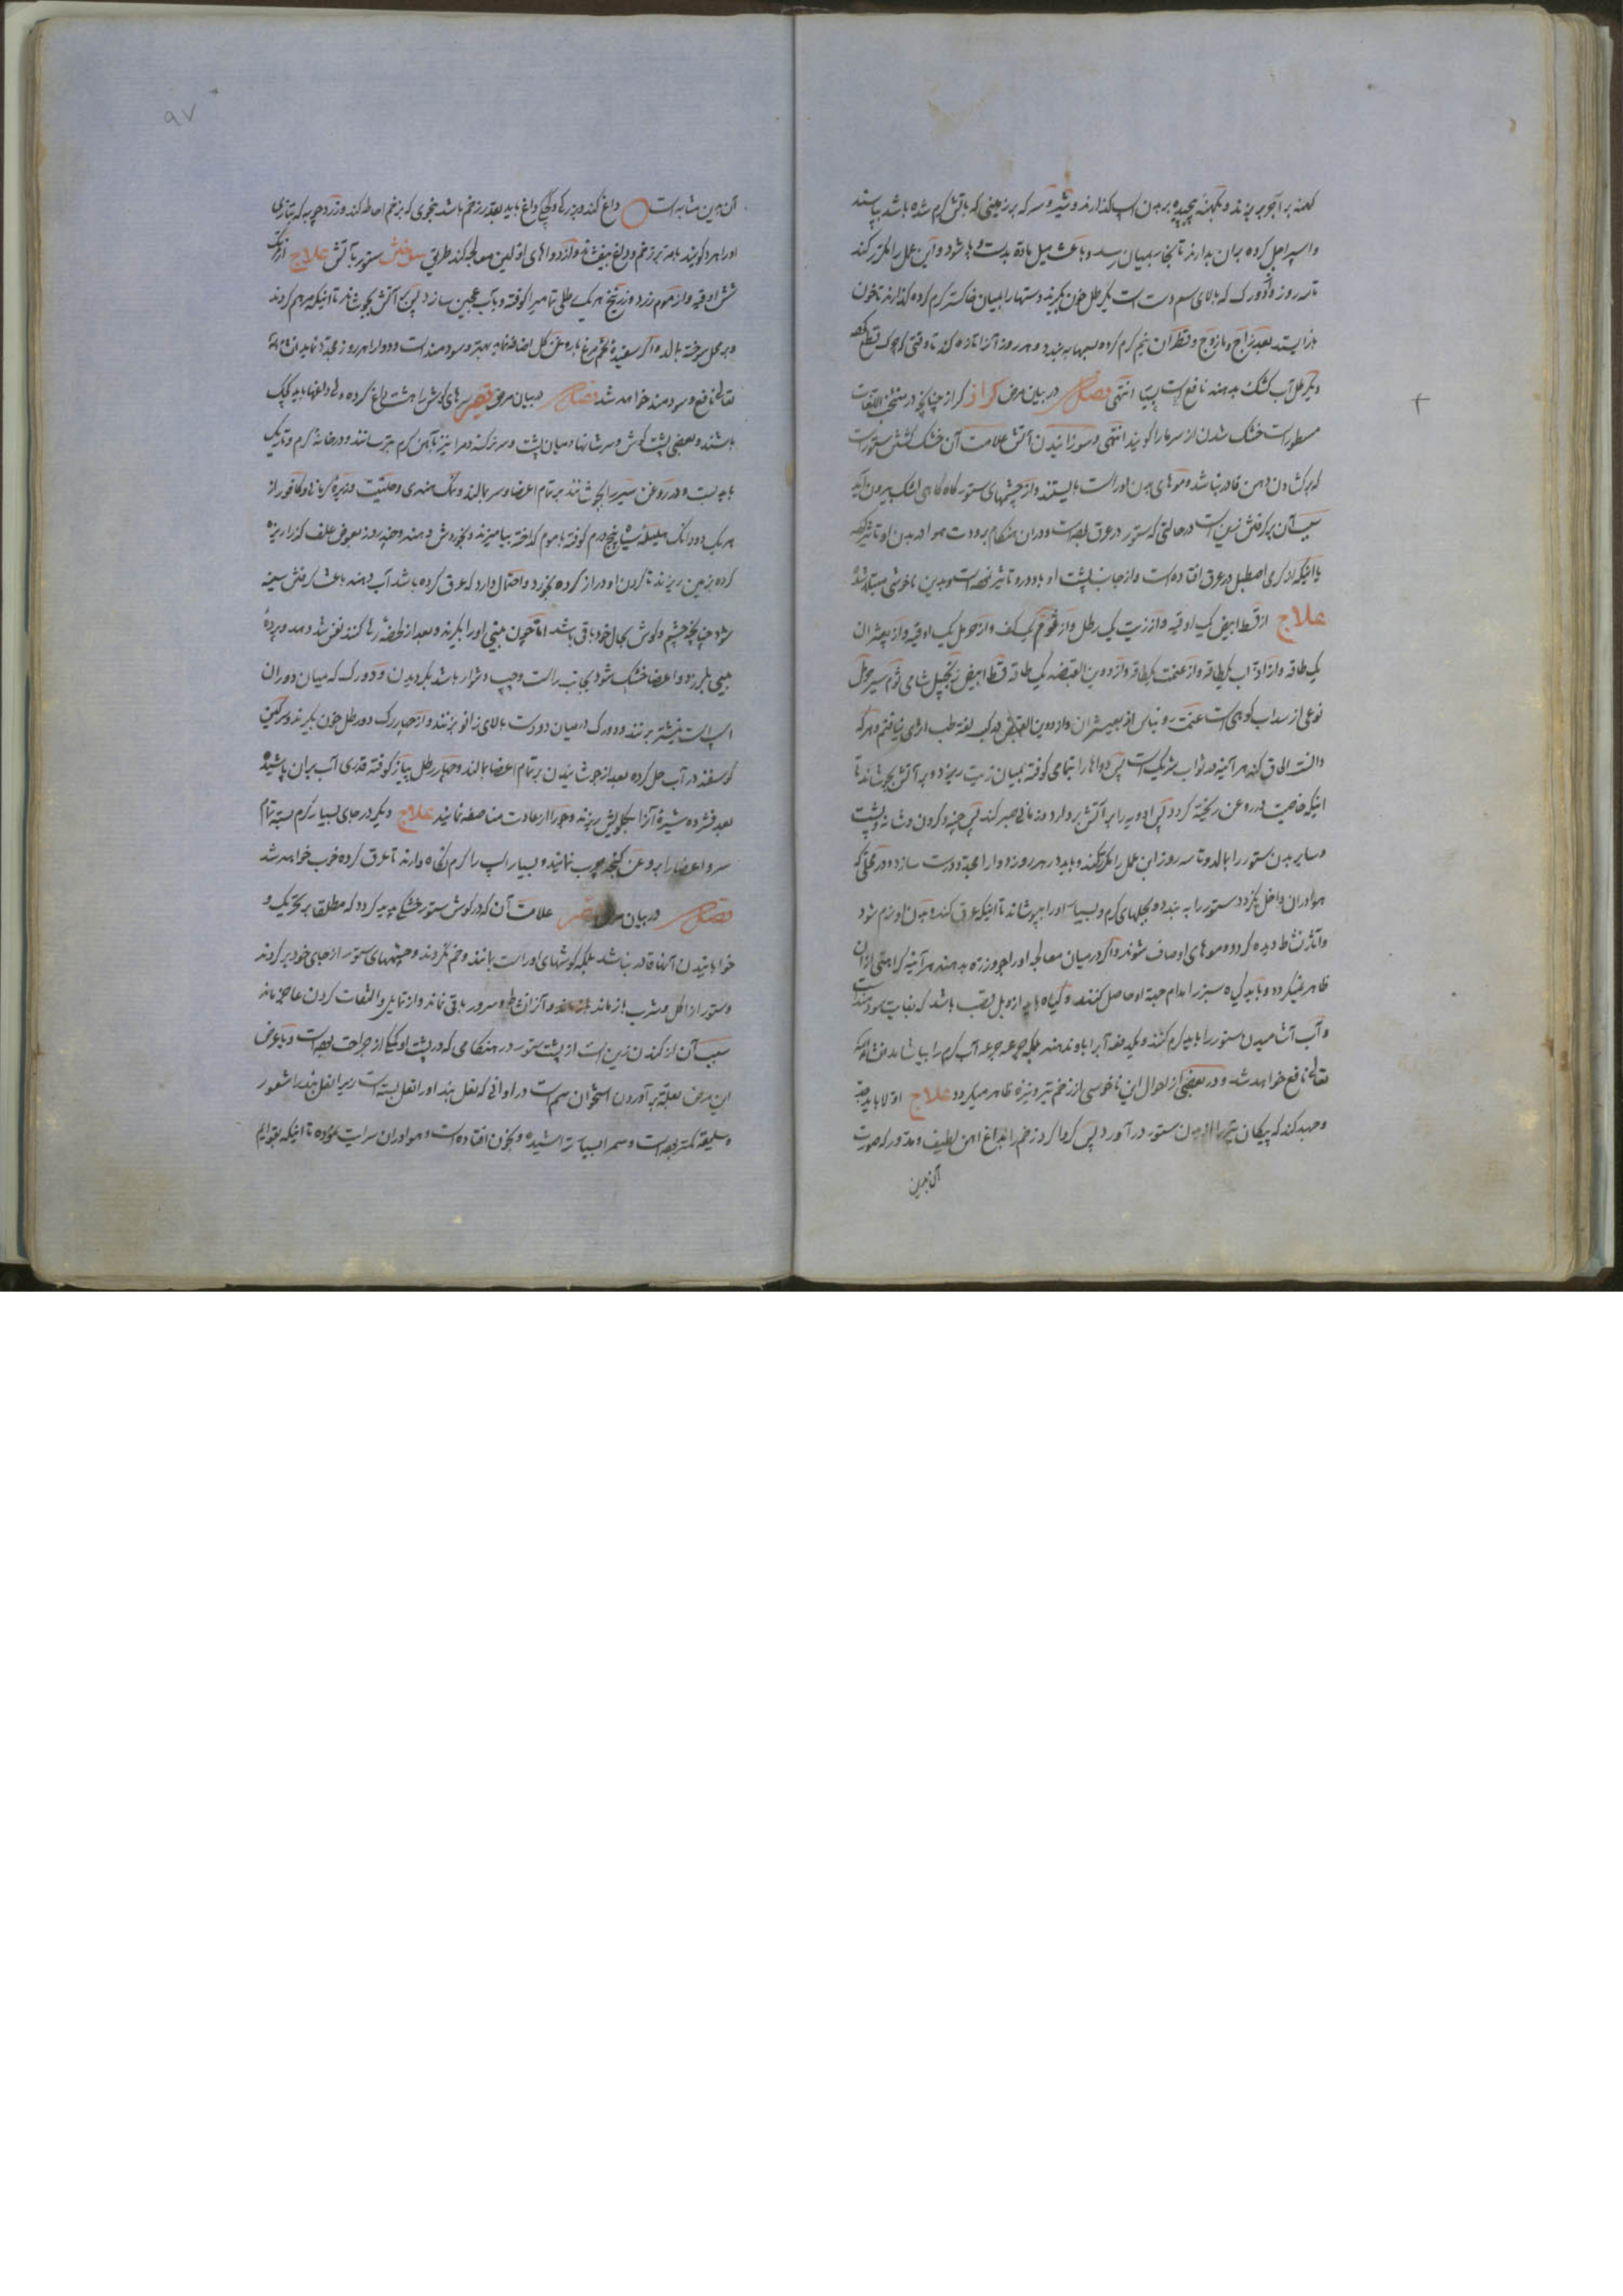 کهنه بر آجر بریزند و بکهنه پیچیده بر بدن اسپ گذارند و شیر و سرکه بر زمینی که بآتش گرم شده باشد بپاشند
و اسپ را جل کرده بران بدارند تا بخار بمیان رسد و باعث میل ماده بدست و پا شود و این عمل را مکرر کند
تا سه روز و از دو رک که بالای سم دست است یک رطل خون بگیرند و ستها را بمیان خاکستر گرم کرده گذارند تا خون
باز ایستد بعد زاج و مازوج و قطران نیم گرم کرده بسمها به بندد و هر روز آنرا تازه کند تا وقتی که
دیگر آب کشک بدهند نافع است انتهی فصل در بیان مرض کزاز کزاز چنانچه در منتخب اللغات
مسطور است خشک شدن از سرما را گویند انتهی و سوزانیدن آتش علامت آن خشک ستور است
که بر گشادن دهن قادر نباشد و موهای بدن او راست بایستند و از چشمهای ستور گاه گاهی اشک بیرون آید
سبب آن بر گرفتن زین است در حالتی که ستور در عرق بوده است و دران هنگام برودت هوا در بدن او تاثیر
یا اینکه از گرمی اصطبل در عرق افتاده است و از جانب پشت او باد درو تاثیر نموده است و بدین ناخوشی مبتلا شده
علاج از قسط ابیض یک اوقیه و از زیت یک رطل و از ثوم یک کف و از حومل یک اوقیه و از بعیثران
یک طاقه و از اذاب یکطاقه و از یکطاقه و از دوین القبضه یک طاقه قسط ابیض زنجبیل شامی ثوم سیر حومل
نوعی از سداب کوهی است رو نیاس از بعیثران و از دوین القبض در کتب لغه طب اثری نیافتم و هر که
دانست الحاق کند هر آئینه در ثواب شریک است پس دواها را بتمامی کوفته بمیان زیت ریزد و بر آتش بجوشاند تا
اینکه خاصیت در روغن ریخته گردد پس ادویه را بر آتش بردارد و زمانی صبر کند پس گردن و شانه و پشت
و سایر بدن ستور را بمالد و تا سه روز این عمل را مکرر کند و باید در هر روز دوا را مجددا درست سازد و در محلی که
هوا دران داخل نگردد ستور را به بندد و بجلهای گرم و بسیار او را بپوشاند تا اینکه عرق کند و بدن او نرم شود
و آثار نشاط دیده گردد و موهای او صاف شوند و اگر درمیان معالجه او را جو وزره بدهند هر آئینه کراهتی ازان
ظاهر نمیگردد و باید گیاه سبز را بدام جهة او حاصل کنند و گیاه باید از وبل قصب باشد که بغایت سودمند است
و آب آشامیدن ستور را باید گرم کنند و یکدفعه آبرا باو ندهند بلکه جرعه جرعه آب گرم را بیاشامد انشاء الله
تعالی نافع خواهد شد و در بعضی از احوال این ناخوشی از زخم تیر و نیزه ظاهر میگردد علاج اولا باید
و جهد کند که پیکان تیر را از بدن ستور در آورد پس گرداگرد زخم را بداغ آهن لطیف و مدور که صورت
آن بدین
۹۷
آن بدین مثابه است داغ کند و بزرگی و کوچکی داغ باید بقدر زخم باشد بنحوی که بزخم احاطه کند و زردچوبه که بتازی
او را هرد گویند بامه بر زخم و داغ بیفشاند و از دواهای اولین معالجه کند طریق سوختن ستور بآتش علاج از
شش اوقیه و از موم زرد و زرنیخ هر یک رطلی تمامیرا کوفته و بآب عجین سازد پس بآتش بجوشاند تا اینکه مرهم گردند
و بر محل سوخته بمالد و اگر سفیدهٔ تخم مرغ با روغن گل اضافه نماید بهتر و سودمند است و دوا را هر روز مجددا نماید انشاءالله
تعالی نافع و سودمند خواهد شد فصل در بیان مرض قصر سرهای گوش را هشت داغ کرده ولی داغها باید کوچک
باشند و بعضی پشت گوش و سرشانها و میان پشت و سر هر کفه دمرا نیز بآهن گرم بترسانند و در خانهٔ گرم و تاریک
باید بست و در روغن سیر را بجوشانند بر تمام اعضا و سر بمالند و نمک هندی و حلتیت و زیرهٔ کرمانی و کافور از
هر یک دو دانگ هلیلهٔ سیاه پنج درم کوفته با موم گداخته بیامیزند و بخوردش دهند و چند روز بعوض علف گذرا ریزه
کرده بزمین ریزند تا گردن او دراز کرده بخورد و احتمال دارد که عرق کرده باشد آب دهند باعث گرفتن سینه
شود چنانچه چشم و گوش بحال خود باقی باشد اما چون بینی او را بگیرند و بعد از لحظهٔ رها کنند نفس تند دمد و پردهٔ
بینی بلرزد و اعضا خشک شود بجانب راست و چپ دشوار باشد بگردیدن و دو رک که میان دو ران
اسپ است نیشتر بزنند و دو رک درمیان دو دست بالای زانو بزنند و از چهار رک دو رطل خون بگیرند و سرگین
گوسفند در آب حل کرده بعد از جوشانیدن بر تمام اعضا بمالند و چهار رطل پیاز کوفته قدری آب بران پاشیده
بعد فشرده شیرهٔ آنرا بگلویش ریزند و جو را از عادت مناصفه نمایند علاج دیگر در جای بسیار گرم بسته تمام
سر و اعضا را بروغن کنجد چرب نمایند و بسیار اسپ را گرم نگاه دارند تا عرق کرده خوب خواهد شد
فصل در بیان مرض قصر علامت آن که در گوش ستور خشکی پدید گردد که مطلقا بر تحریک و
خوابانیدن آنها قادر نباشد بلکه گوشهای او راست بمانند و خم نگردند و چشمهای ستور از جای خود بر گردند
و ستور از اکل و شرب باز ماند و آثار نشاط و سرور باقی نماند و از تمایل و التفات کردن عاجز ماند
سبب آن از کندن زین است از پشت ستور در هنگامی که در پشت او یکی از جراحت بوده است و یا عروض
این مرض بعلة بر آوردن استخوان سم است در اوانی که نعل بند او را نعل بسته است زیرا نعل بند را شعور
و سلیقه کمتر بوده است و سم را بسیار تراشیده و بخون افتاده است و هوا دران سرایت نموده تا اینکه بقوایم